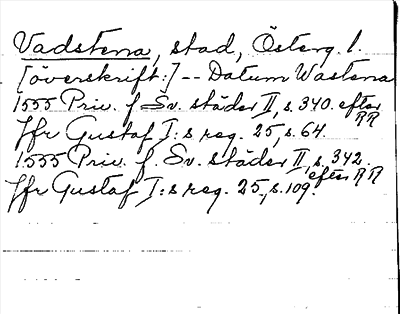 Vadstena, stad, Österg. l.
[överskrift:] -- Datum Wastena
1555 Priv. f. Sv. städer II, s. 340. efter RR
Jfr Gustaf I:s reg. 25, s. 64.
1555 Priv. f. Sv. städer II, s. 342. efter RR
Jfr Gustaf I:s reg. 25, s. 109.